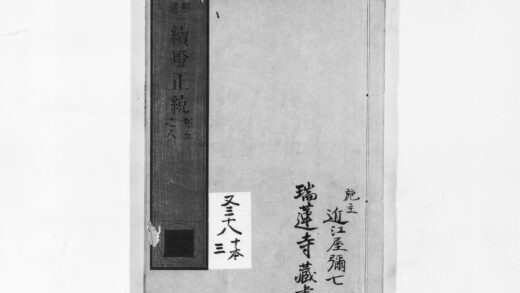 續燈正統
卷五
之八
又三十八
十本
三
施主
近江屋彌七
瑞蓮寺藏